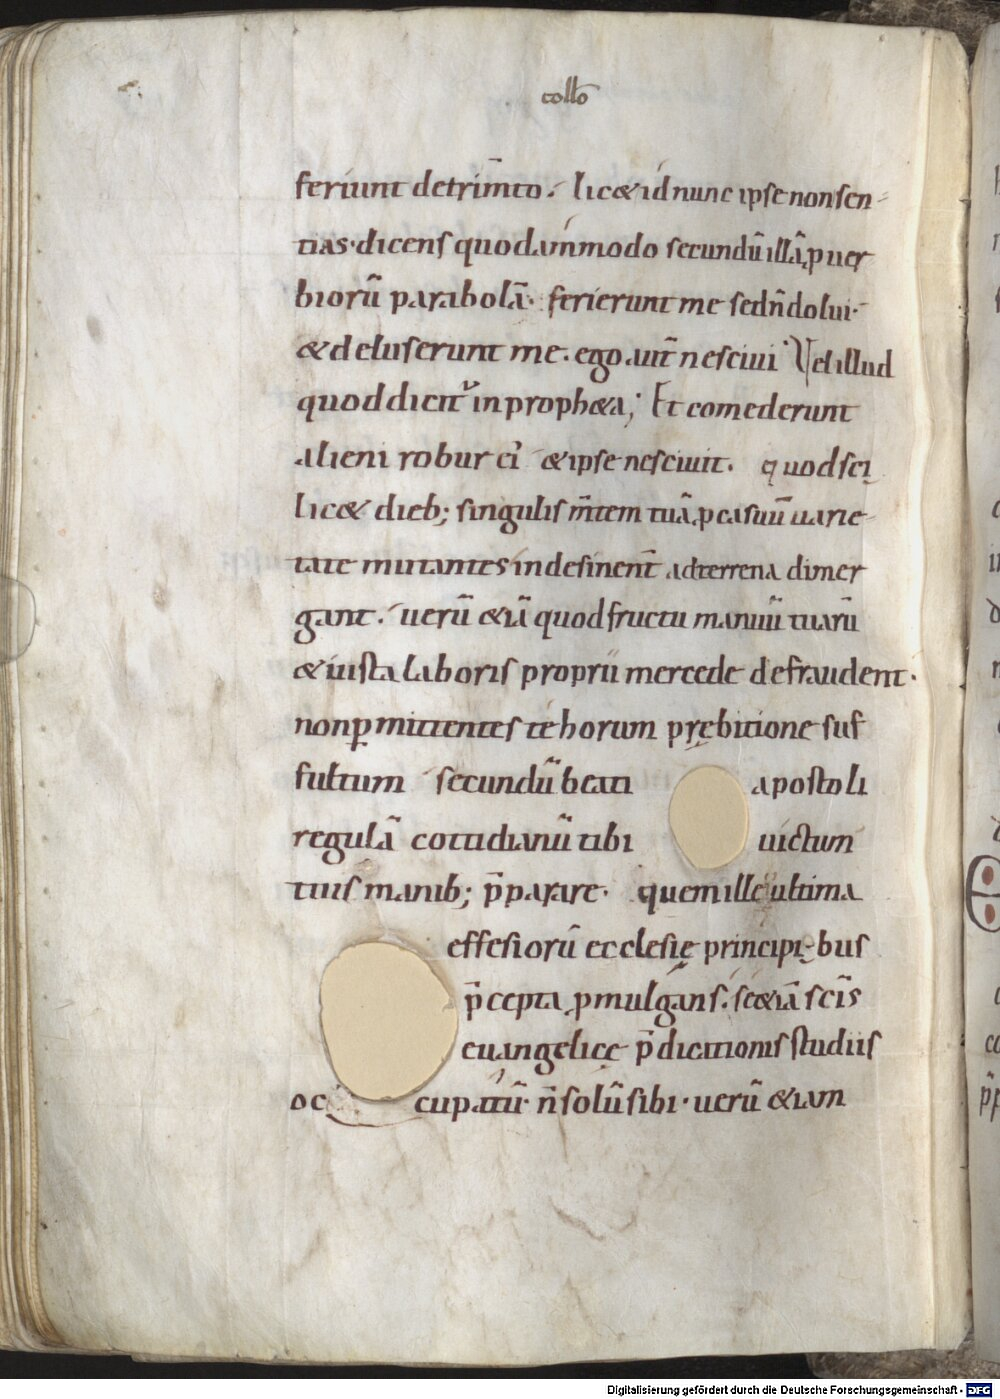 collõ
feriunt detrim̅to. lic& id nunc ipse non sen-
tias· dicens quodammodo secundū illā ꝓuer
biorū parabolā· ferierunt me sed n̅ dolui·
& deluserunt me. ego aut̅ nesciui· Vel illud
quod dicit᷒ in proph&a; Et comederunt
alieni robur ei᷒ & ipse nesciuit. quod sci
lic& dieb; singulis m̅tem tuā ꝑ casuū uarie-
tate mutantes indesinent̅ ad terrena dimer
gant. uerū &iā quod fructu manuū tuarū
& iusta laboris proprii mercede defraudent·
non ꝑmittentes te horum prębitione suf
fultum secundū beati apostoli
regulā cottidianū tibi uictum
tuis manib; p̅parare. quem ille ultima
effesiorū ecclesię principibus
p̅cepta ꝓmulgans. se &iā sc̅is
euangelicę p̅dicationis studiis
oc cupatū n̅ solū sibi· uerū &iam
Digitalisierung gefördert durch die Deutsche Forschungsgemeinschaft - DFG